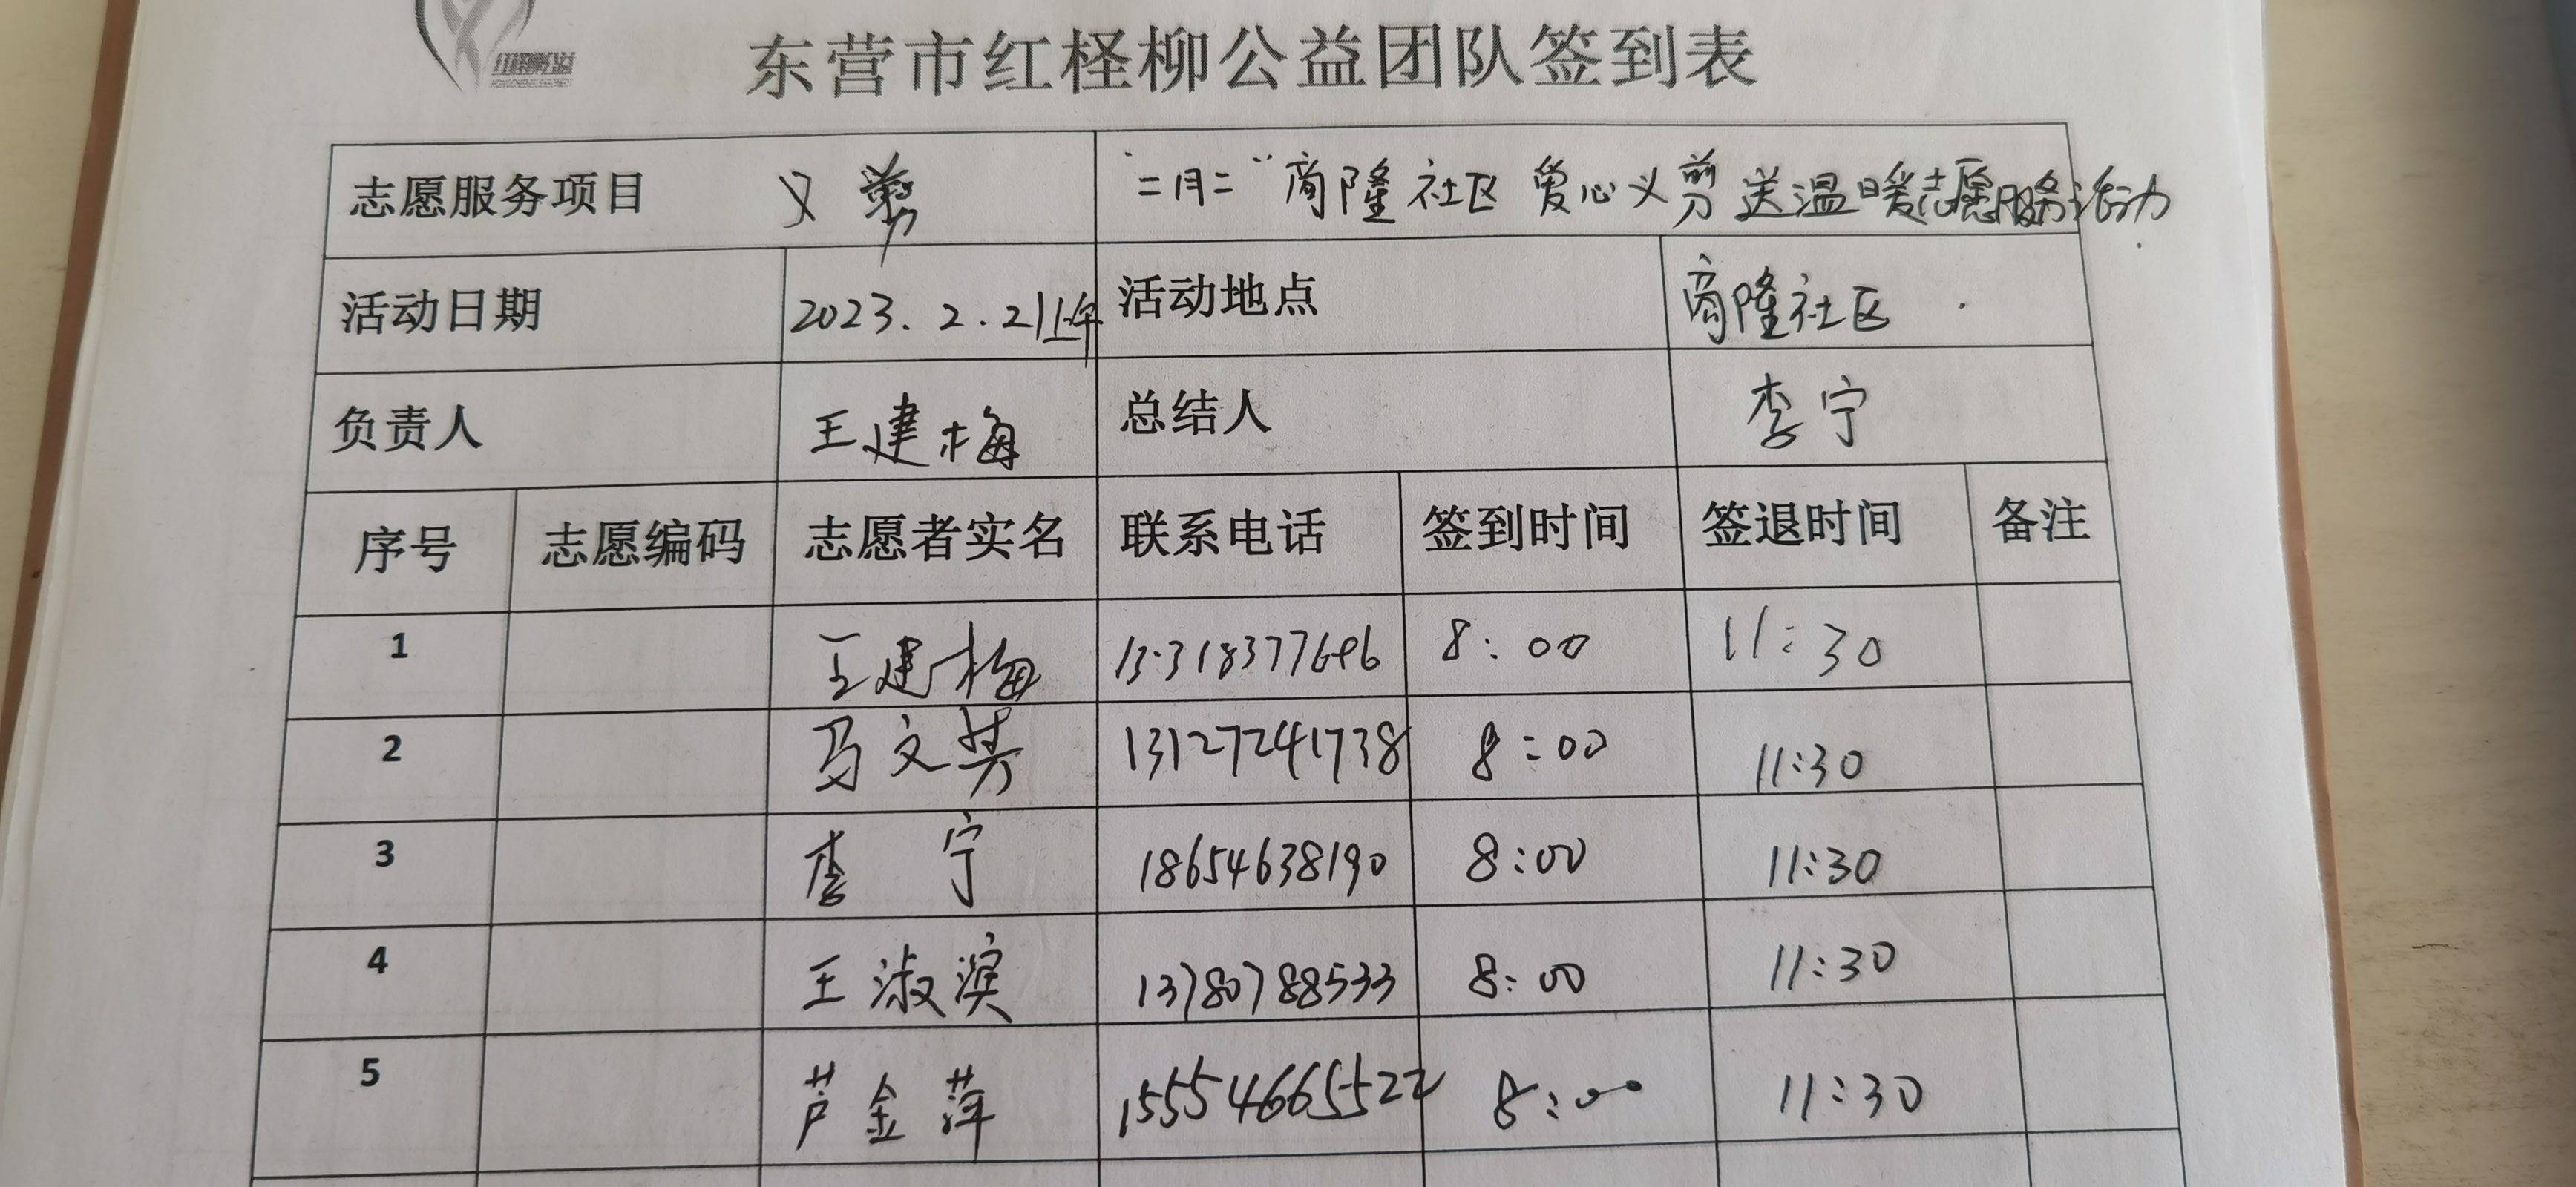 东营市红柽柳公益团队签到表
志愿服务项目 义剪 "二月二"商隆社区爱心义剪送温暖志愿服务活动
活动日期 2023.2.21上午 活动地点 商隆社区
负责人 王建梅 总结人 李宁
序号 志愿编码 志愿者实名 联系电话 签到时间 签退时间 备注
1 王建梅 8:00 11:30
2 马文英 13127241738 8:00 11:30
3 李宁 18654638190 8:00 11:30
4 王淑滨 13780788533 8:00 11:30
5 芦金萍 15554665522 8:00 11:30